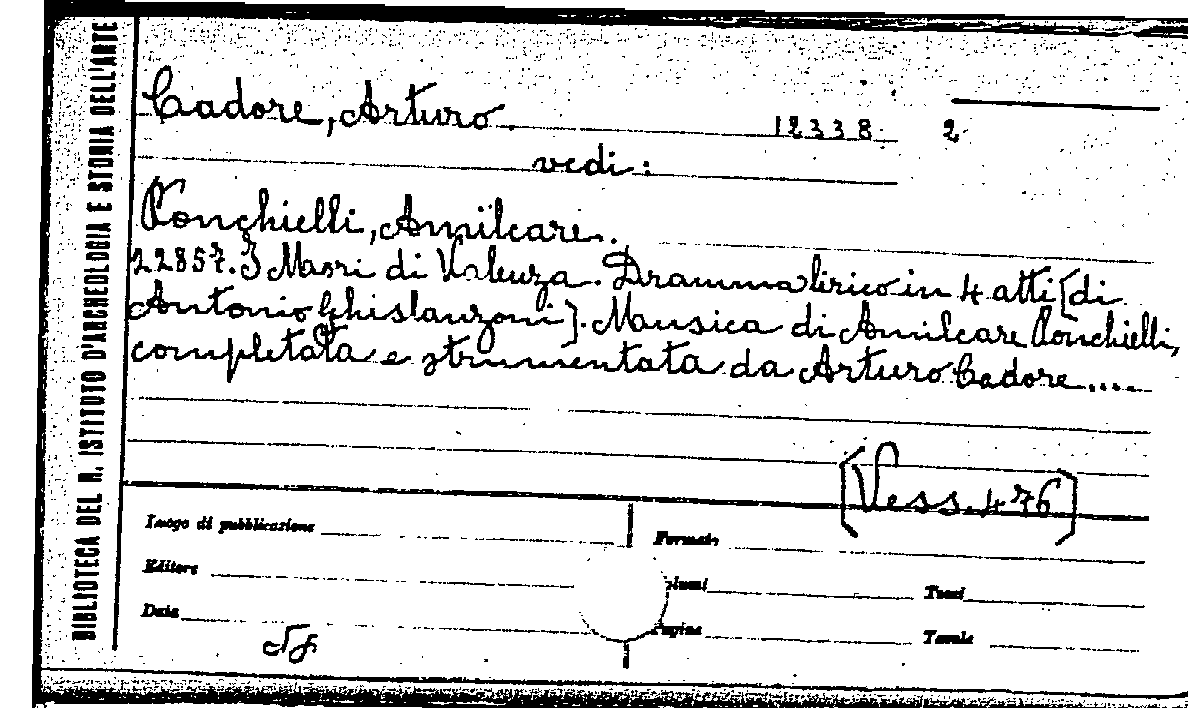 BIBLIOTECA DEL R. ISTITUTO D'ARCHEOLOGIA E STORIA DELL'ARTE
Cadore, Arturo. 12338. 2
vedi:
Ponchielli, Amilcare.
22857. I Mori di Valenza. Dramma lirico in 4 atti [di
Antonio Ghislanzoni]. Musica di Amilcare Ponchielli,
completata e strumentata da Arturo Cadore....
[Vess. 476]
Luogo di pubblicazione
Formato
Editore
Tomi
Data
Pagine
Tavole